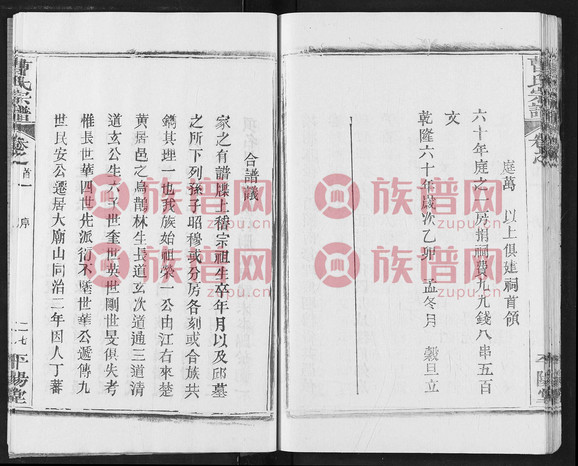 曹氏宗譜
卷之
平陽堂
庭萬　以上俱建祠首領
六十年庭之一房捐祠費九九錢八串五百
文
乾隆六十年歲次乙卯　孟冬月　穀旦立
合譜議
家之有譜牒上稽宗祖生卒年月以及邱墓
之所下列孫子昭穆或分房各刻或合族共
鐫其理一也我族始祖榮一公由江右來楚
黃居邑之鳥鵲林生長道玄次道通三道清
道玄公生六子世奎世英世剛世旻俱失考
惟長世華四世先派衍不墜世華公遞傳九
世民安公遷居大廟山同治二年因人丁蕃
曹氏宗譜
卷之首一
序
二七
平陽堂
族谱网
zupu.cn
族谱网
zupu.cn
族谱网
zupu.cn
族谱网
zupu.cn